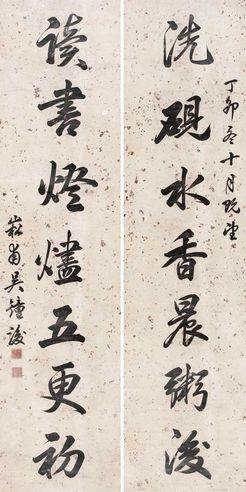 丁卯冬十月既望
洗硯水香晨粥後
读書燈燼五更初
崧甫吳鐘駿